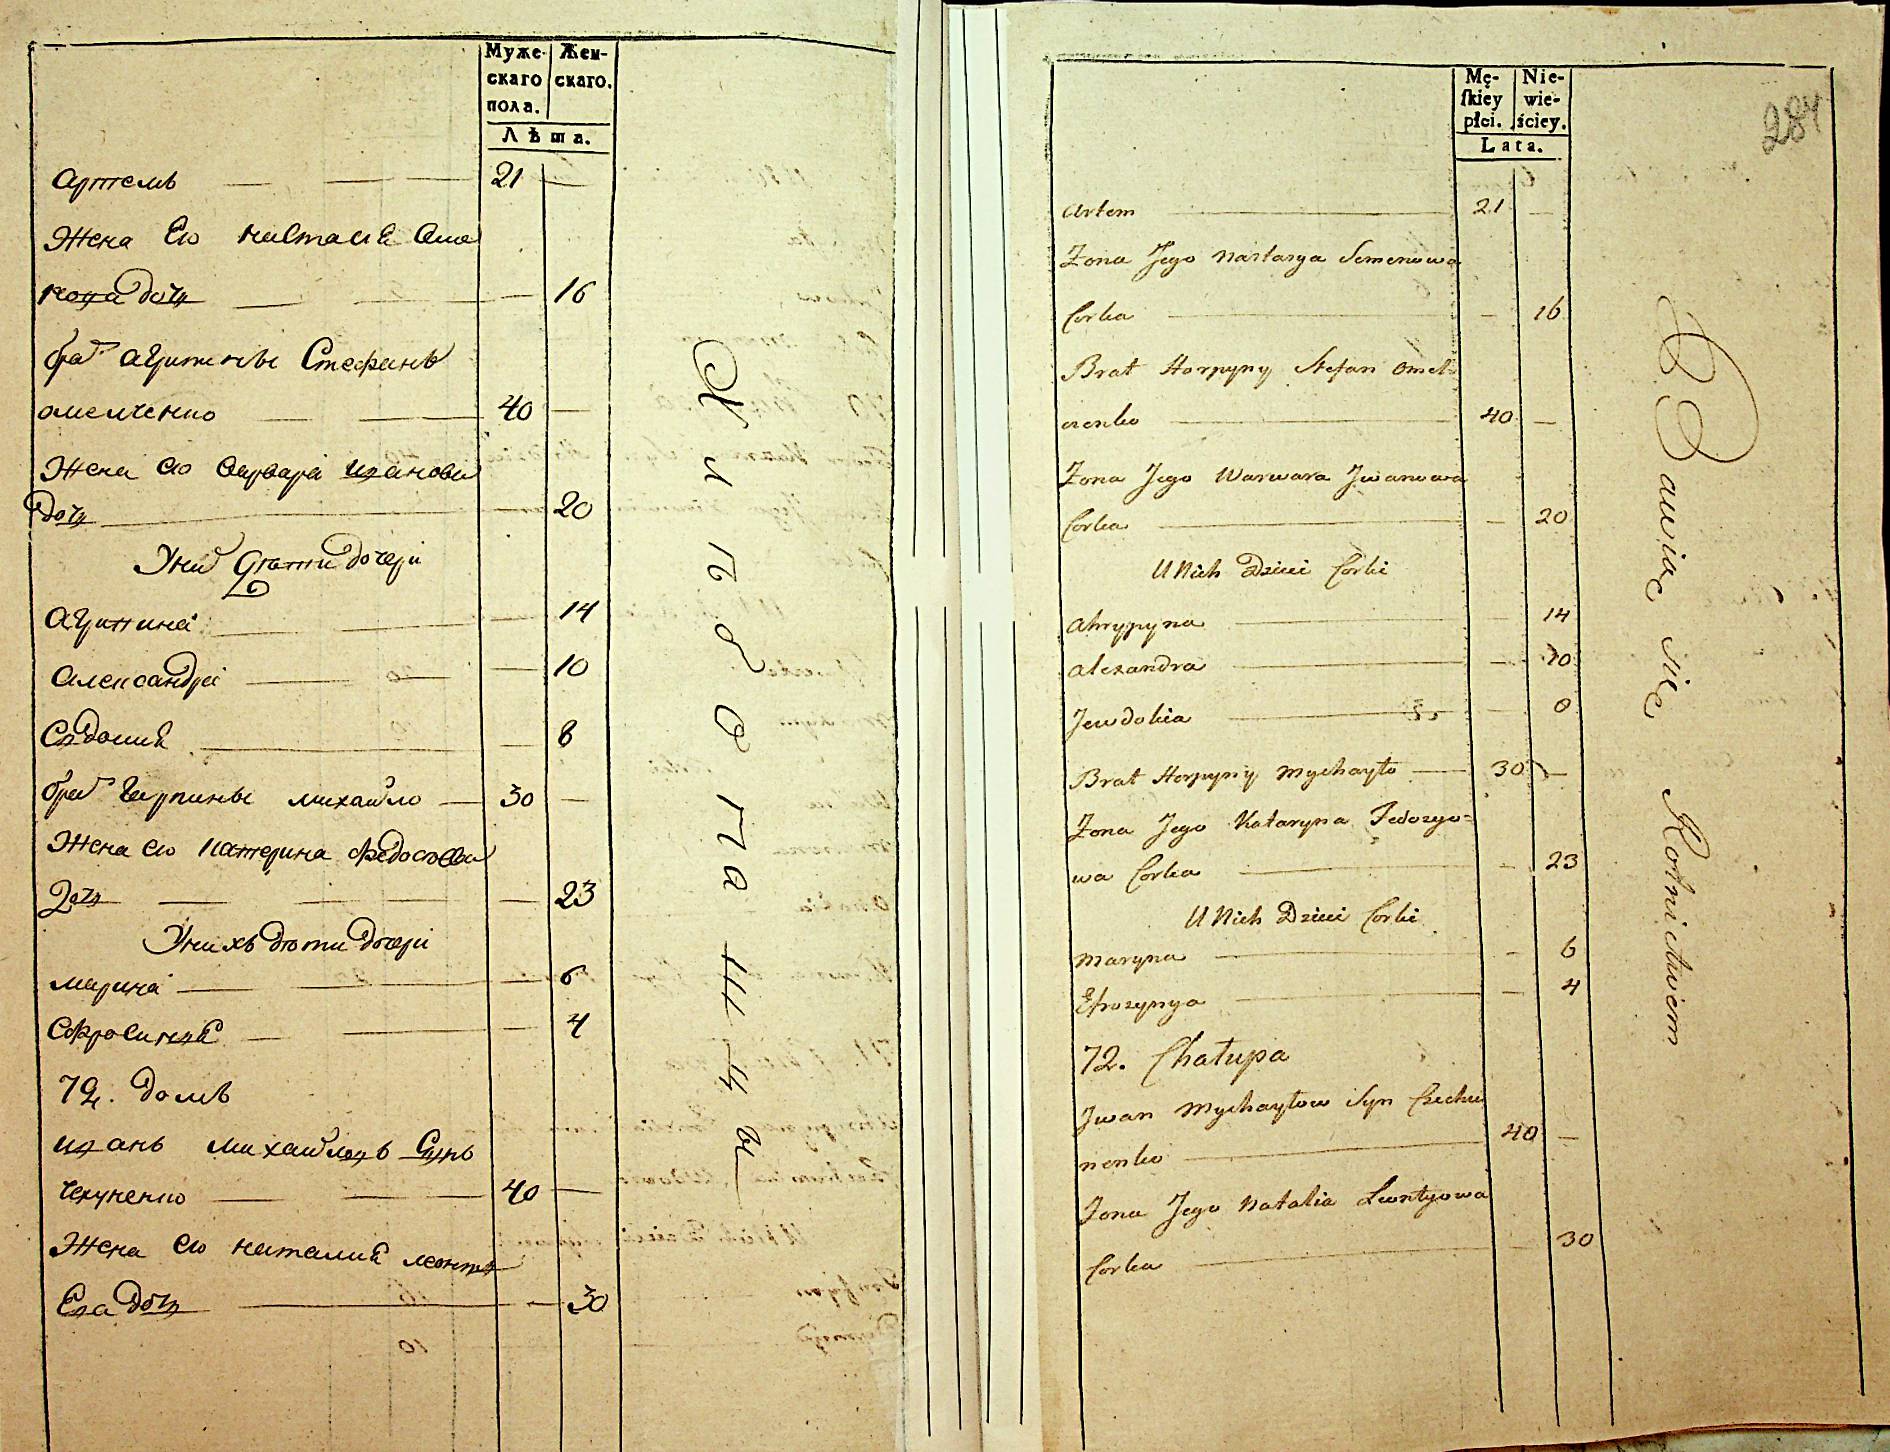 Муже-
скаго
пола.
Жен-
скаго.
Лѣта.
Артемъ — 21 —
Жена Его Настасиѣ Семе
нова дочь — 16
бра агрипены Стефанъ
омелченко — 40 —
Жена его варвара иванова
дочь — 20
У них дѣти дочери
агрипина — 14
александра — 10
Евдокия — 8
бра Гарпины михайло — 30 —
Жена его катерина федосиева
дочь — 23
У нихъ дѣти дочери
марина — 6
Ефросиния — 4
72. домъ
иванъ михайловъ Сынъ
чехуненко — 40 —
Жена его наталия леонтъ
Ева дочь — 30
Хлѣбопашцы
Mę-
ſkiey
płci.
Nie-
wie-
ściey.
Lata.
284
Artem — 21 —
Zona Jego Nastasya Semenowa
Corka — 16
Brat Horpyny Stefan Omel
czenko — 40 —
Zona Jego Warwara Jwanowa
Corka — 20
U Nich Dzieci Corki
Ahrypyna — 14
Alexandra — 10
Jewdokia — 8
Brat Horpyny Mychayło — 30 —
Zona Jego Kataryna Fedozyo=
wa Corka — 23
U Nich Dzieci Corki
Maryna — 6
Efrozynya — 4
72. Chałupa
Jwan Mychayłow Syn Czechu
nenko — 40 —
Zona Jego Natalia Leontyowa
Corka — 30
Bawiąc się Rolnictwem